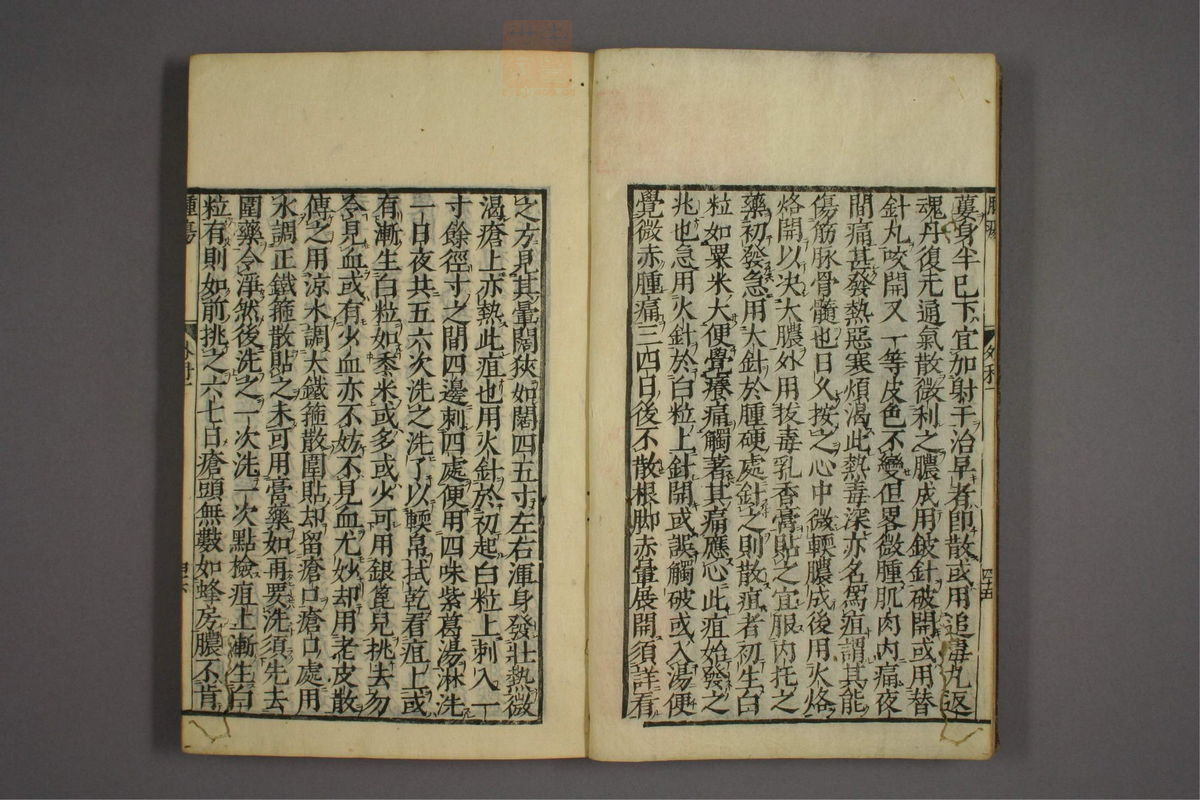 蔓身半已下宜加射干治早者即散或用追毒丸返
魂丹復元通氣散微利之膿成用鈹針破開或用替
針丸咬開又一等皮色不變但畧微腫肌肉内痛夜
間痛甚發熱惡寒煩渴此熱毒深亦名爲疽謂其能
傷筋脉骨髓也日久按之心中微輭膿成後用火烙
烙開以决大膿外用拔毒乳香膏貼之宜服内托之
藥初發急用大針於腫硬處針之則散疽者初生白
粒如粟米大便覺癢痛觸著其痛應心此疽始發之
兆也急用火針於白粒上針開或誤觸破或入湯便
覺微赤腫痛三四日後不散根脚赤暈展開須詳看
之方見其暈闊狹如闊四五寸左右渾身發壯熱微
渴瘡上亦熱此疽也用火針於初起白粒上刺入一
寸餘徑寸之間四邊刺四處便用四味紫葛湯淋洗
一日夜共五六次洗之洗了以輭帛拭乾看疽上或
有漸生白粒如黍米或多或少可用銀篦兒挑去勿
令見血或有少血亦不妨不見血尤妙却用老皮散
傅之用涼水調大鐵箍散圍貼却留瘡口瘡口處用
水調正鐵箍散貼之未可用膏藥如再要洗須先去
圍藥令淨然後洗之一次洗一次點檢疽上漸生白
粒有則如前挑之六七日瘡頭無數如蜂房膿不肯
腫瘍